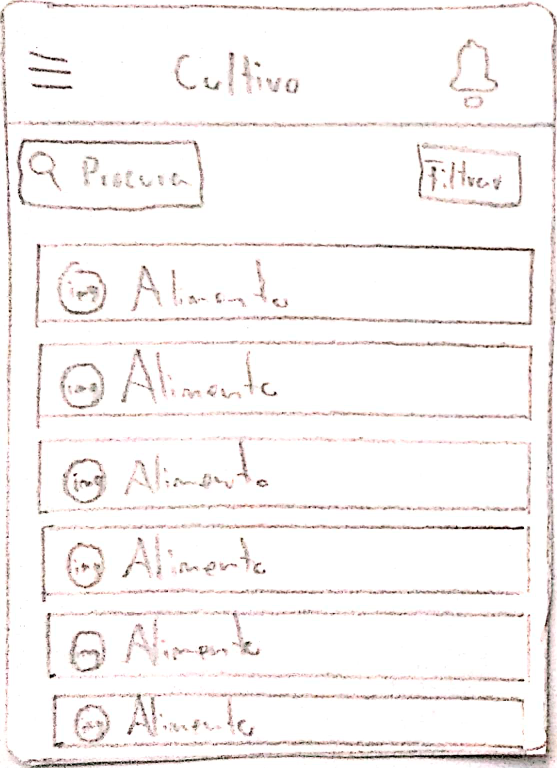 Cultivo
Procura
Filtrar
img Alimento
img Alimento
img Alimento
img Alimento
img Alimento
img Alimento